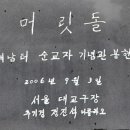 머릿돌
새남터 순교자 기념관 봉헌
2006년 9월 3일
서울 대교구장
추기경 정진석 니콜라오